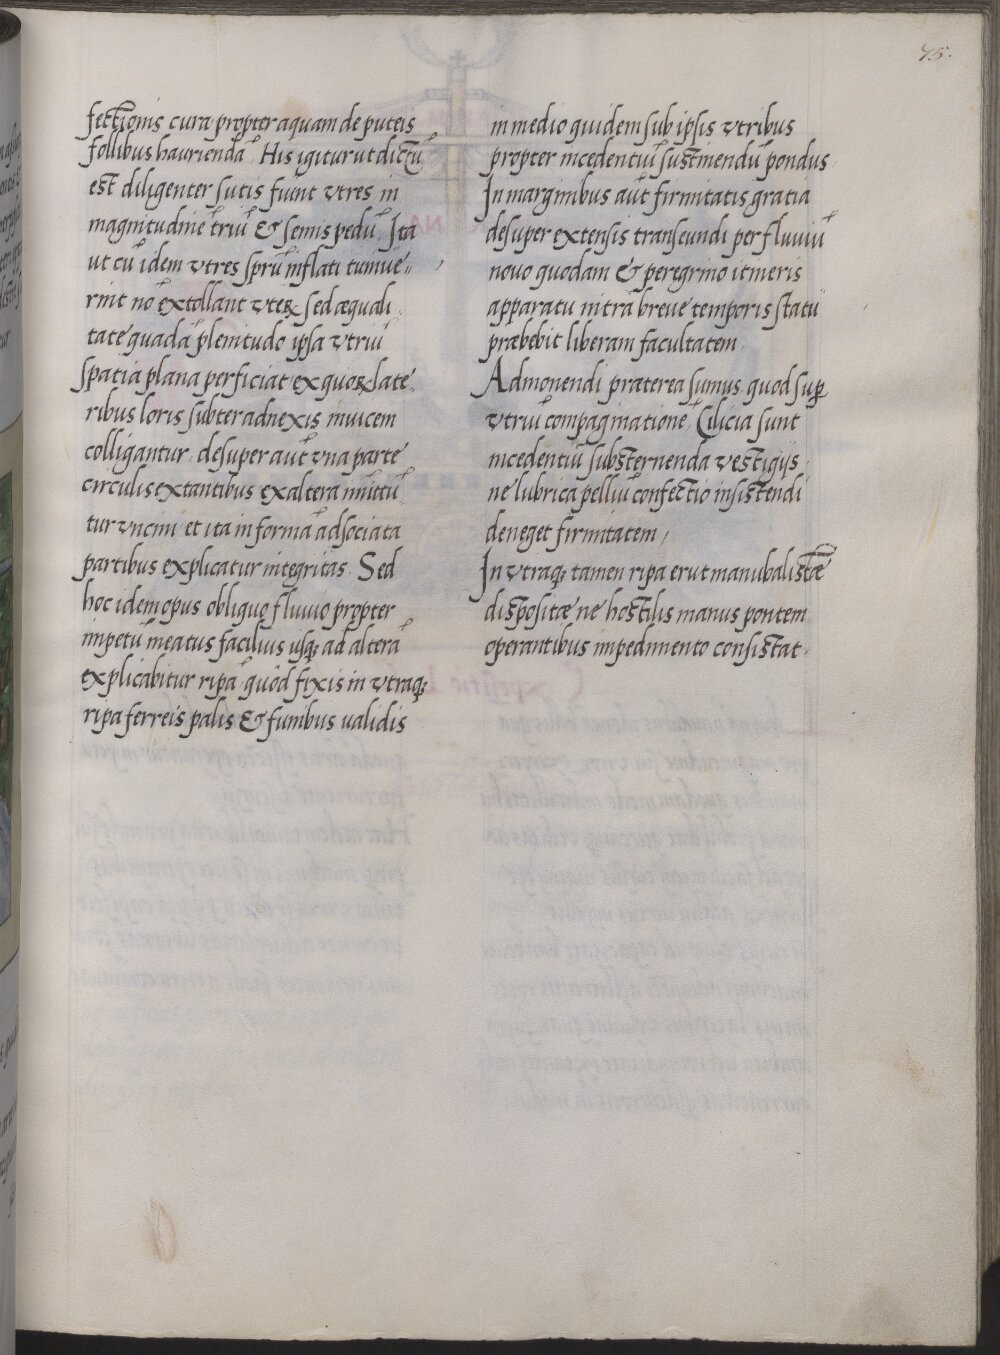 75.
fectionis cura propter aquam de puteis
follibus haurienda͞. His igitur ut dictu͞
est diligenter sutis fiunt vtres in
magnitudine͞ triu͞ & semis pedu͞, Ita
ut cu͞ idem vtres spr͞u inflati tumue⸗
rint no͞ extollant vterꝝ, sed æquali
tate quada͞ plenitudo ipsa vtriu͞
spatia plana perficiat ex quoꝝ late⸗
ribus loris subter adnexis inuicem
colligantur, desuper aut͞ vna parte
circulis extantibus ex altera inittu͞
tur vncini et ita in forma͞ adsociata
partibus explicatur integritas. Sed
hoc idem opus obliquo fluuio propter
impetu͞ meatus facilius usqꝫ ad altera͞
explicabitur ripa͞ quod fixis in vtraqꝫ
ripa ferreis palis & funibus ualidis
in medio quidem sub ipsis vtribus
propter incedentiu͞ sustinendu͞ pondus.
In marginibus aut͞ firmitatis gratia
desuper extensis transeundi per fluuiu͞
nouo quodam & peregrino itineris
apparatu intra͞ breue temporis statu͞
præbebit liberam facultatem.
Admonendi præterea sumus quod sup̱
vtriu͞ compaginatione͞ Cilicia sunt
incedentiu͞ substernenda vestigijs,
ne lubrica pelliu͞ confectio insistendi
deneget firmitatem,
In vtraqꝫ tamen ripa erut manubalistæ͞
dispositæ ne hostilis manus pontem
operantibus impedimento consistat.
Expositio